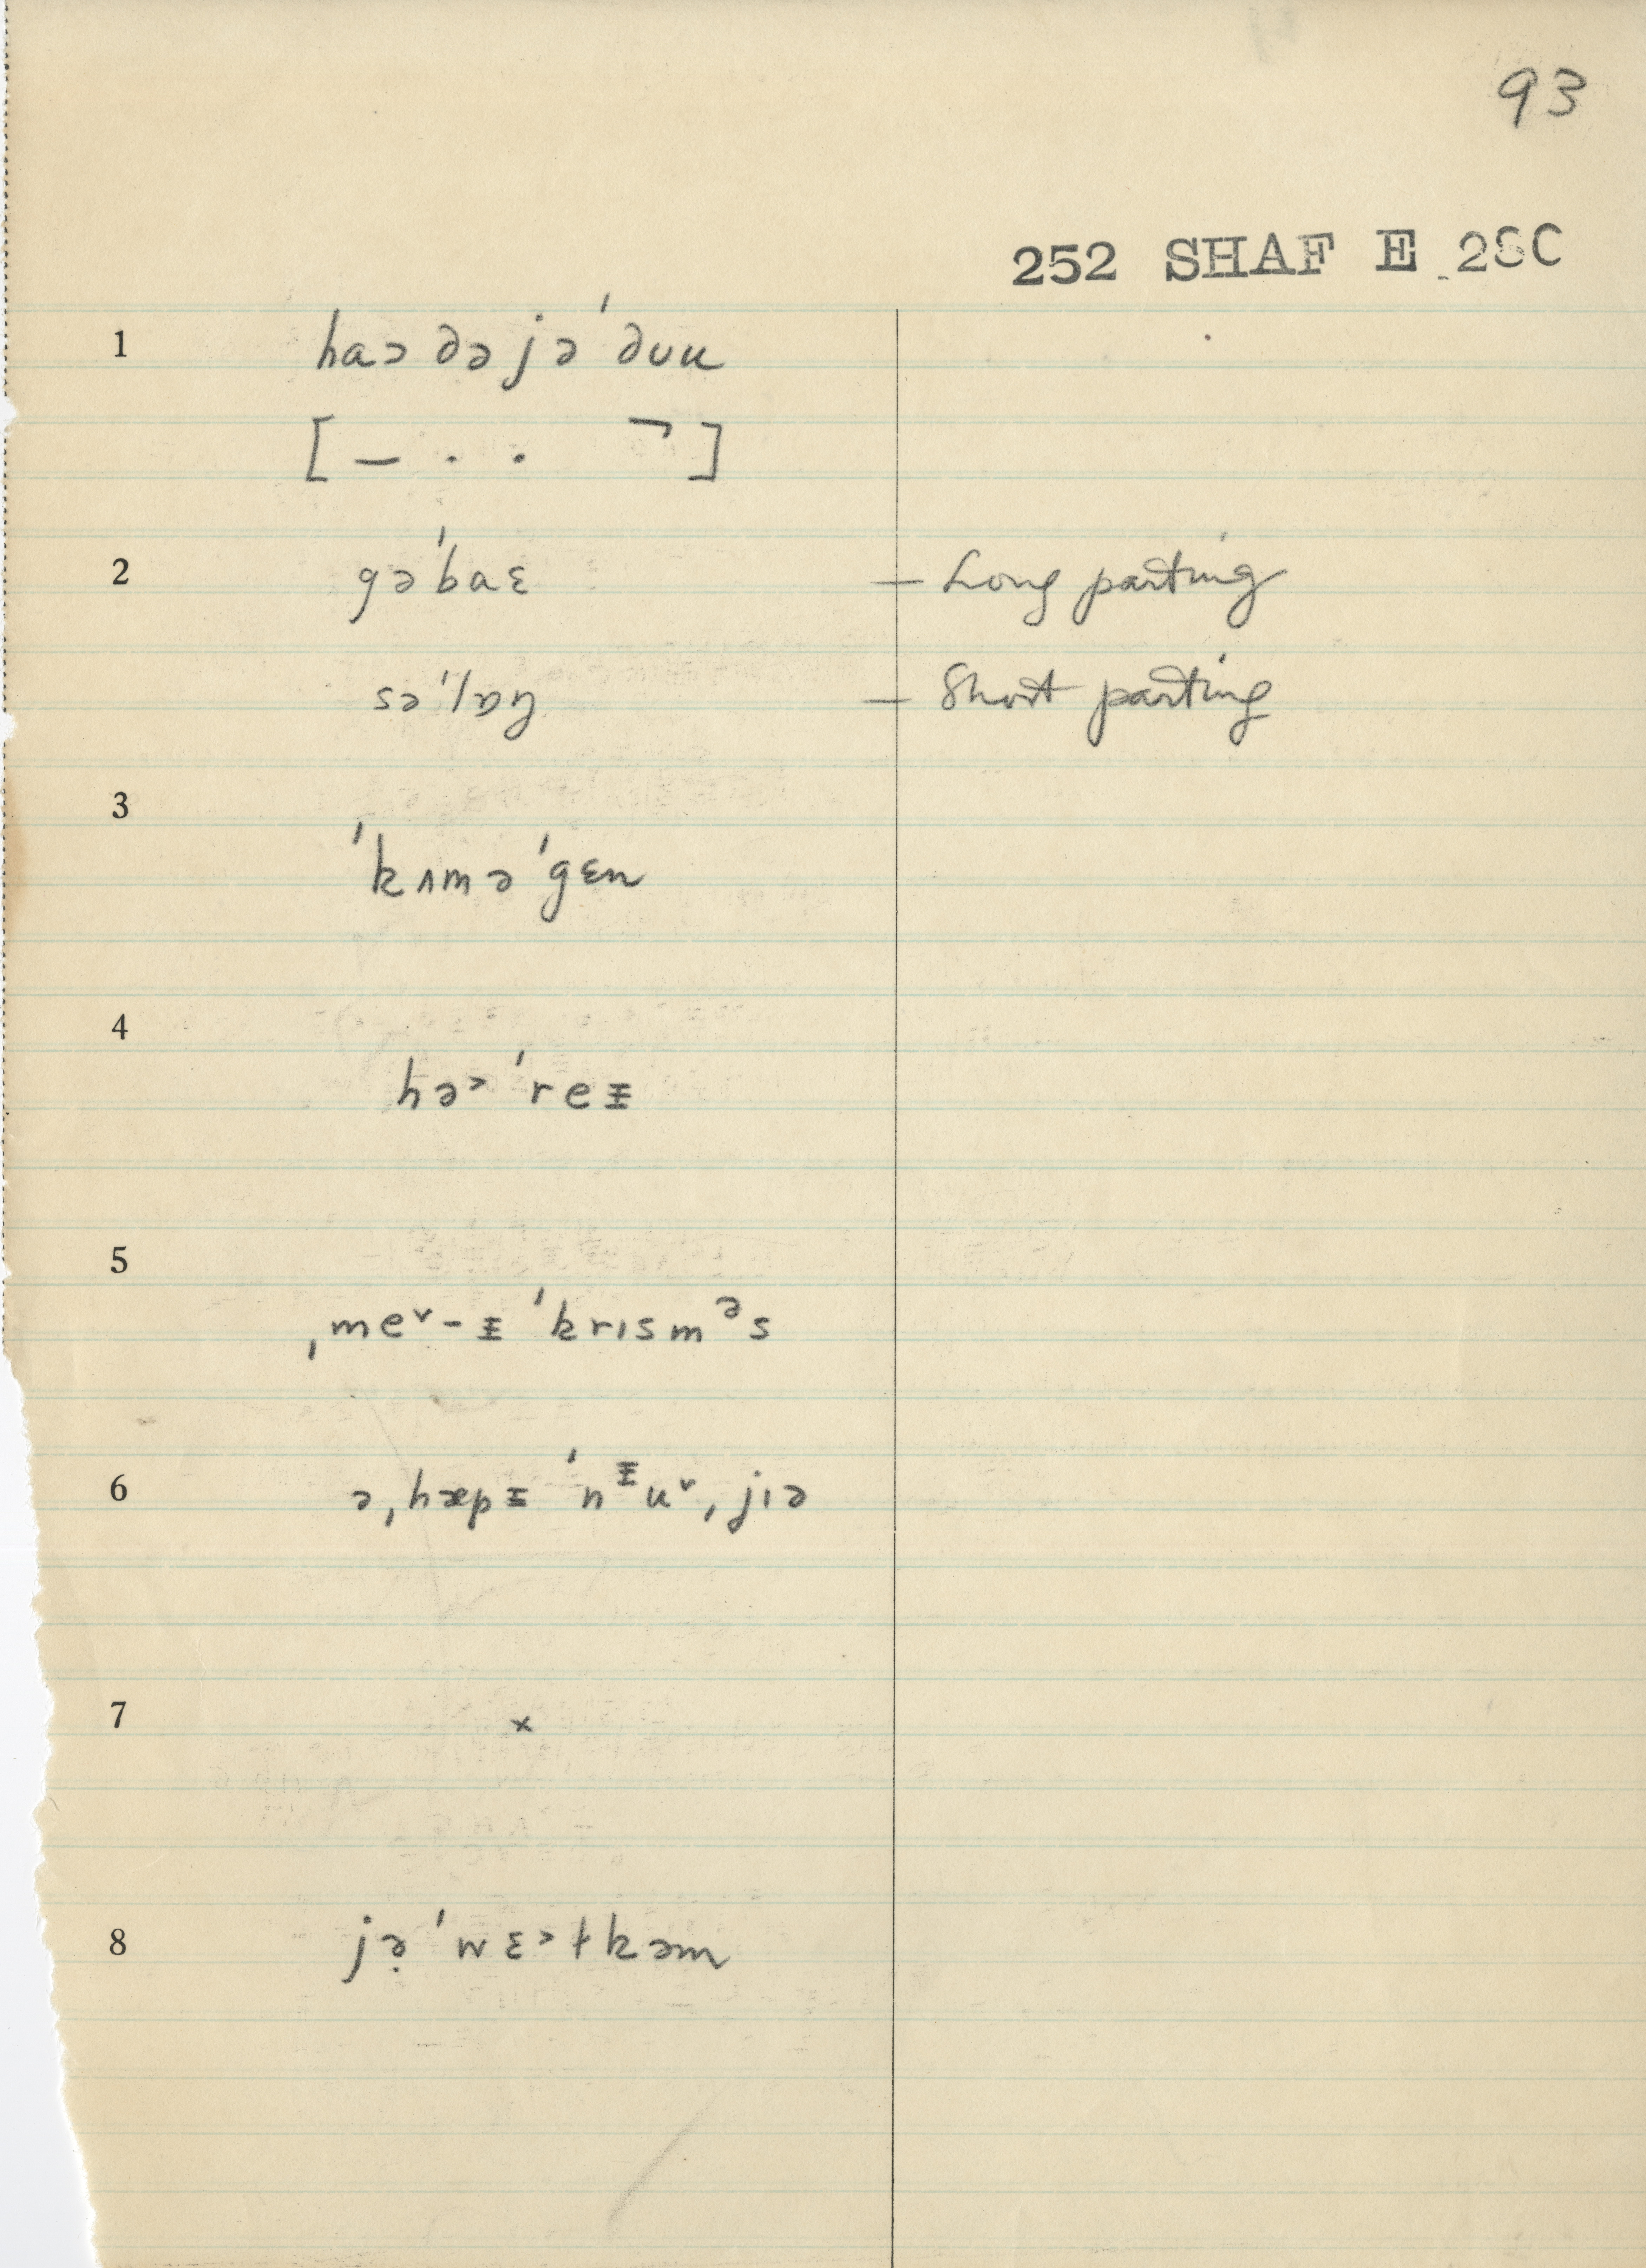 93
252 SHAF E 28C
1 haɔ ðə jə ˈðuu
[ – . . ¬ ]
2 gəˈbaɛ – Long parting
səˈlɒŋ – Short parting
3
ˈkʌmə ˈgɛn
4
hə˃ ˈreɪ̵
5
ˌme˅-ɪ̵ ˈkrɪsmᵊs
6 əˌhæpɪ̵ ˈnᶤu˅ˌjɪə
7 ×
8 jə̣ ˈwɛ˃ɫkəm